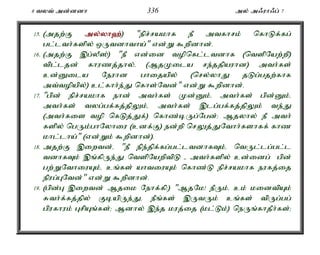 8 வலவ் அன்னனா 336 அல் அஃராஃப் 7
15. (அதற்கு அல்லாஹ்) "நிச்சயமாக நீ அவகாசம் கொடுக்கப்
பட்டவர்களில் ஒருவனாவாய்" என்று கூறினான்.
16. (அதற்கு இப்லீஸ்) "நீ என்னை வழிகெட்டவனாக (வெளியேற்றி)
விட்டதன் காரணத்தால், (ஆதமுடைய சந்ததியரான) அவர்கள்
உன்னுடைய நேரான பாதையில் (செல்லாது தடுப்பதற்காக
அவ்வழியில்) உட்கார்ந்து கொள்வேன்" என்று கூறினான்.
17. "பின் நிச்சயமாக நான் அவர்கள் முன்னும், அவர்கள் பின்னும்,
அவர்கள் வலப்பக்கத்திலும், அவர்கள் இடப்பக்கத்திலும் வந்து
(அவர்களை வழி கெடுத்துக்) கொண்டிருப்பேன்; ஆதலால் நீ அவர்
களில் பெரும்பாலோரை (உனக்கு) நன்றி செலுத்துவோர்களாகக் காண
மாட்டாய்" (என்றும் கூறினான்).
18. அதற்கு இறைவன், "நீ நிந்திக்கப்பட்டவனாகவும், வெருட்டப்பட்ட
வனாகவும் இங்கிருந்து வெளியேறிவிடு - அவர்களில் உன்னைப் பின்
பற்றுவோரையும், உங்கள் யாவரையும் கொண்டு நிச்சயமாக நரகத்தை
நிரப்புவேன்" என்று கூறினான்.
19. (பின்பு இறைவன் ஆதமை நோக்கி:) "ஆதமே! நீரும், உம் மனைவியும்
சுவர்க்கத்தில் குடியிருந்து, நீங்கள் இருவரும் உங்கள் விருப்பப்
பிரகாரம் புசியுங்கள்; ஆனால் இந்த மரத்தை (மட்டும்) நெருங்காதீர்கள்;